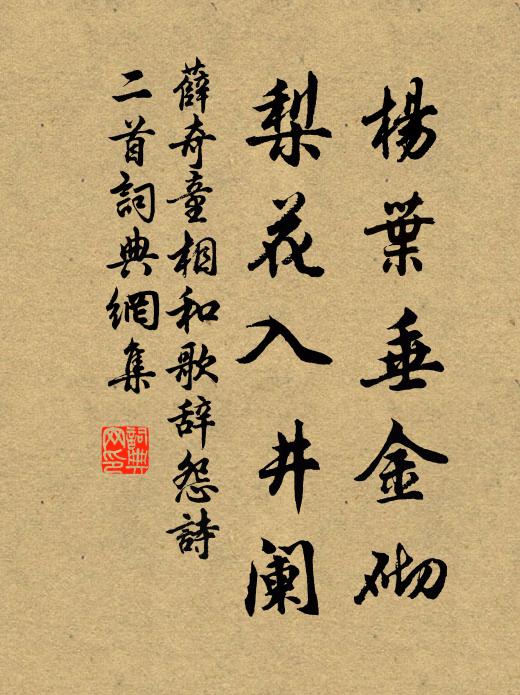 楊葉垂金砌
梨花入井阑
薛奇童相和歌辞怨詩
二首詞典網集
詞典
网印